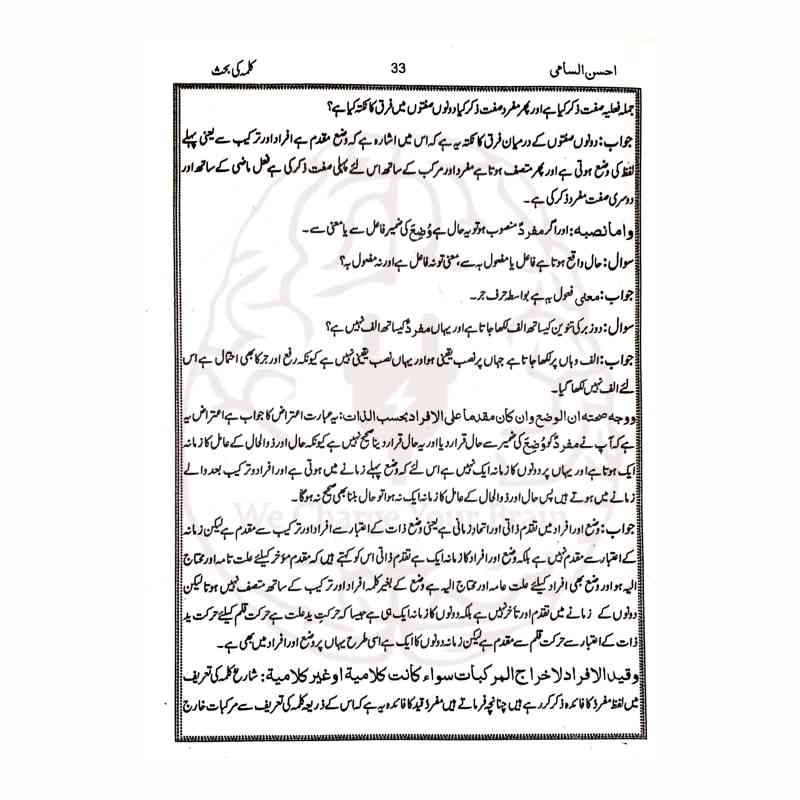 احسن السامی 33 کلمہ کی بحث
جملہ فعلیہ صفت ذکر کیا ہے اور پھر مفرد صفت ذکر کیا دونوں صفتوں میں فرق کا نکتہ کیا ہے؟
جواب: دونوں صفتوں کے درمیان فرق کا نکتہ یہ ہے کہ اس میں اشارہ ہے کہ وضع مقدم ہے افراد اور ترکیب سے یعنی پہلے
لفظ کی وضع ہوتی ہے اور پھر متصف ہوتا ہے مفرد اور مرکب کے ساتھ اس لئے پہلی صفت ذکر کی ہے فعل ماضی کے ساتھ اور
دوسری صفت مفرد ذکر کی ہے۔
واما نصبہ: اور اگر مفردً منصوب ہو تو یہ حال ہے وُضِعَ کی ضمیر فاعل سے یا معنی سے۔
سوال: حال واقع ہوتا ہے فاعل یا مفعول بہ سے، معنی تو نہ فاعل ہے اور نہ مفعول بہ؟
جواب: معنی فعول بہ ہے بواسطہ حرف جر۔
سوال: دو زبر کی تنوین کیساتھ الف لکھا جاتا ہے اور یہاں مفردً کیساتھ الف نہیں ہے؟
جواب: الف وہاں پر لکھا جاتا ہے جہاں پر نصب یقینی ہو اور یہاں نصب یقینی نہیں ہے کیونکہ رفع اور جر کا بھی احتمال ہے اس
لئے الف نہیں لکھا گیا۔
ووجہ صحتہ ان الوضع وان کان مقدما علی الافراد بحسب الذات: یہ عبارت اعتراض کا جواب ہے اعتراض یہ
ہے کہ آپ نے مفردً کو وُضِعَ کی ضمیر سے حال قرار دیا اور یہ حال قرار دینا صحیح نہیں ہے کیونکہ حال اور ذوالحال کے عامل کا زمانہ
ایک ہوتا ہے اور یہاں پر دونوں کا زمانہ ایک نہیں ہے اس لئے کہ وضع پہلے زمانے میں ہوتی ہے اور افراد و ترکیب بعد والے
زمانے میں ہوتے ہیں پس حال اور ذوالحال کے عامل کا زمانہ ایک نہ ہوا تو حال بننا بھی صحیح نہ ہوگا۔
جواب: وضع اور افراد میں تقدم ذاتی اور اتحاد زمانی ہے یعنی وضع ذات کے اعتبار سے افراد اور ترکیب سے مقدم ہے لیکن زمانہ
کے اعتبار سے مقدم نہیں ہے بلکہ وضع اور افراد کا زمانہ ایک ہے تقدّم ذاتی اس کو کہتے ہیں کہ مقدم مؤخر کیلئے علت تامہ اور محتاج
الیہ ہو اور وضع بھی افراد کیلئے علت عامہ اور محتاج الیہ ہے وضع کے بغیر کلمہ افراد اور ترکیب کے ساتھ متصف نہیں ہوتا لیکن
دونوں کے زمانے میں تقدم اور تأخر نہیں ہے بلکہ دونوں کا زمانہ ایک ہی ہے جیسا کہ حرکتِ ید علت ہے حرکت قلم کیلئے حرکت ید
ذات کے اعتبار سے حرکت قلم سے مقدم ہے لیکن زمانہ دونوں کا ایک ہے اسی طرح یہاں پر وضع اور افراد میں بھی ہے۔
وقید الافراد لاخراج المرکبات سواء کانت کلامیة او غیر کلامیة: شارع کلمہ کی تعریف
میں لفظ مفردً کا فائدہ ذکر کر رہے ہیں چنانچہ فرماتے ہیں مفردً قید کا فائدہ یہ ہے کہ اس کے ذریعہ کلمہ کی تعریف سے مرکبات خارج
We Charge Your Brain